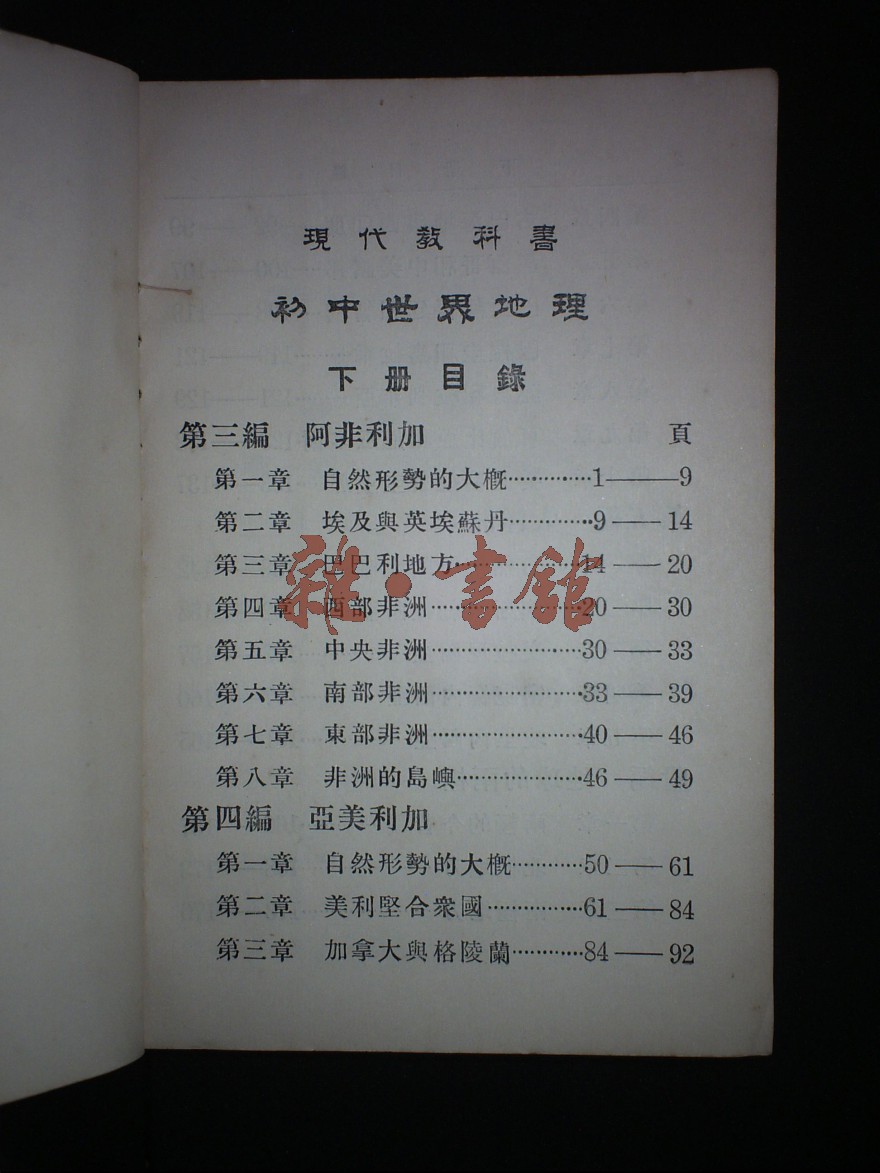 現代教科書
初中世界地理
下册目錄
第三編 阿非利加 頁
第一章 自然形勢的大概⋯⋯⋯⋯1——9
第二章 埃及與英埃蘇丹⋯⋯⋯⋯9——14
第三章 巴巴利地方⋯⋯⋯⋯14——20
第四章 西部非洲⋯⋯⋯⋯20——30
第五章 中央非洲⋯⋯⋯⋯30——33
第六章 南部非洲⋯⋯⋯⋯33——39
第七章 東部非洲⋯⋯⋯⋯40——46
第八章 非洲的島嶼⋯⋯⋯⋯46——49
第四編 亞美利加
第一章 自然形勢的大概⋯⋯⋯⋯50——61
第二章 美利堅合衆國⋯⋯⋯⋯61——84
第三章 加拿大與格陵蘭⋯⋯⋯⋯84——92
雜·書館